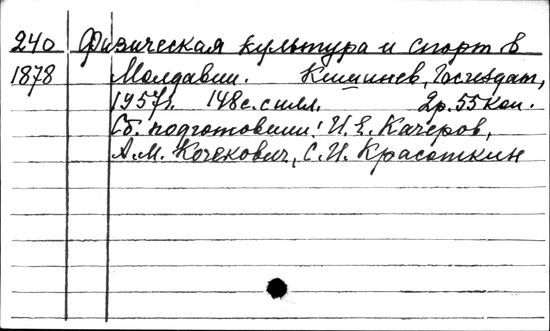 240 Физическая культура и спорт в
1878 Молдавии. Кишинев, Госиздат,
1957г. 148 с. с илл. 2р. 55 коп.
Сб. подготовили: И. Е. Качеров,
А. М. Кочекович, С. И. Красоткин